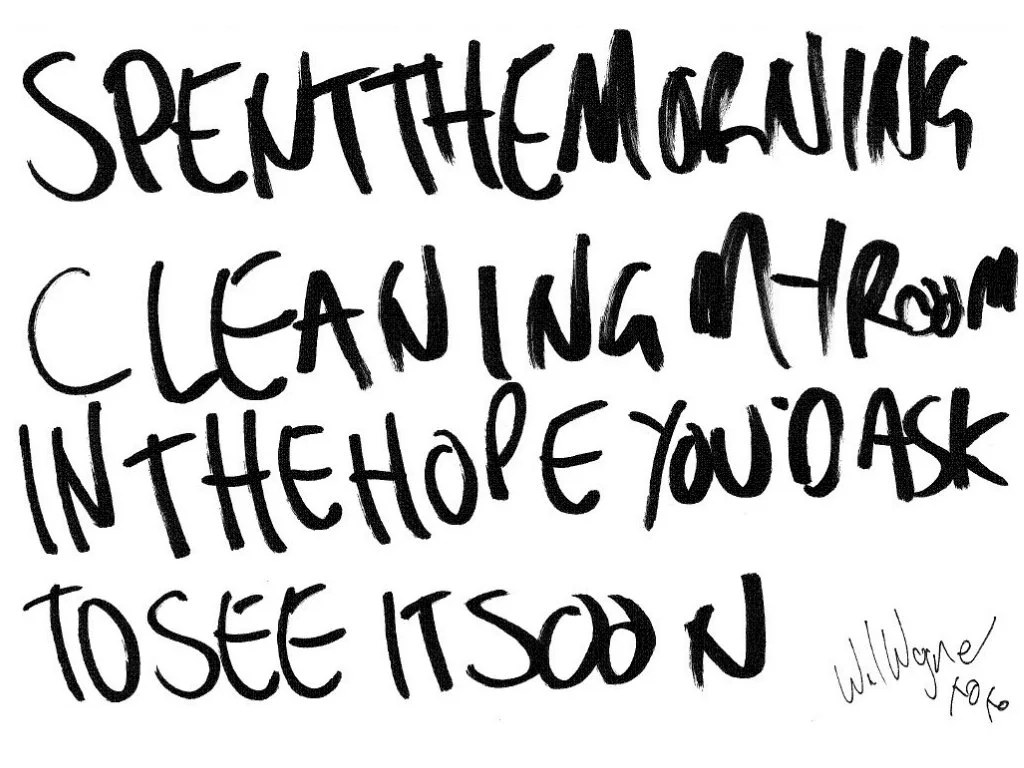 SPENT THE MORNING
CLEANING MY ROOM
IN THE HOPE YOU'D ASK
TO SEE IT SOON
Will Wagne
xoxo